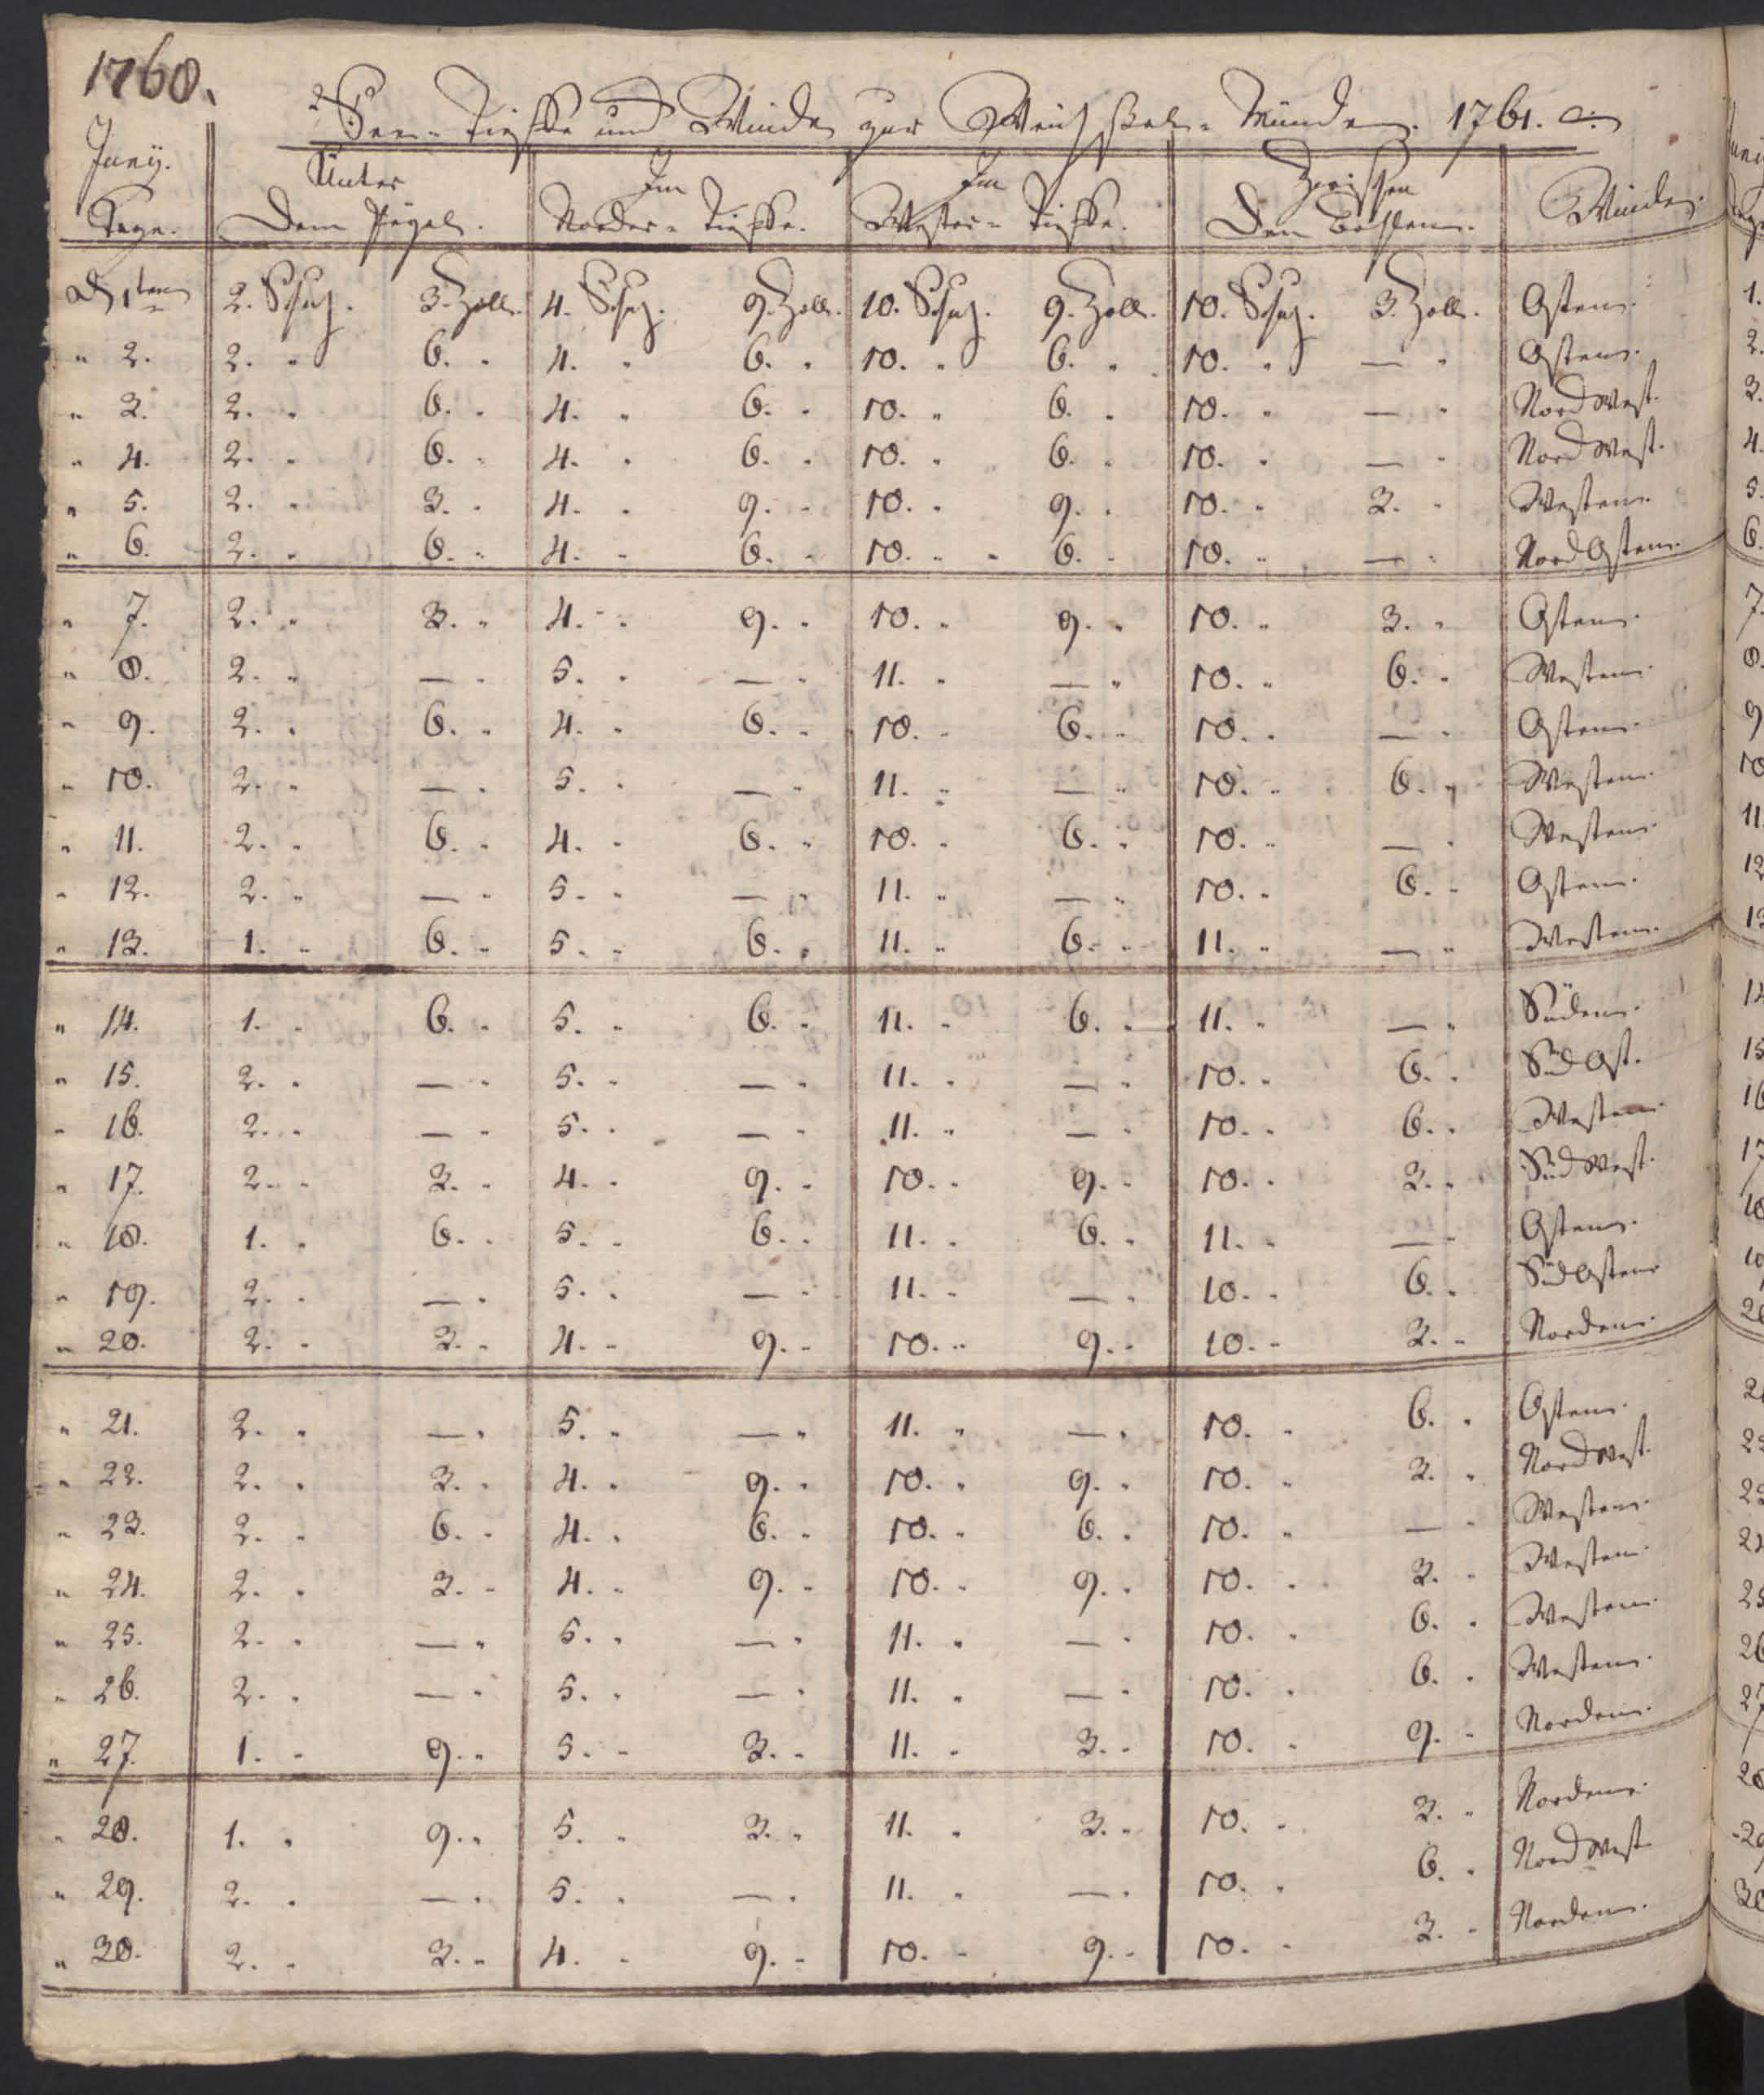 1760.
See-Tieffe und Winde zur Weichsel-Münde. 1761.
Junÿ. Unter Im Im Zwischen
Tage. Dem Pegel. Norder-Tieffe. Wester-Tieffe. Den Bohlen. Winde.
D 1ten 2. Schuh. 3. Zoll. 4. Schuh. 9. Zoll. 10. Schuh. 9. Zoll. 10. Schuh. 3. Zoll. Osten.
" 2. 2. " 6. " 4. " 6. " 10. " 6. " 10. " — " Osten.
" 3. 2. " 6. " 4. " 6. " 10. " 6. " 10. " — " Nord West.
" 4. 2. " 6. " 4. " 6. " 10. " 6. " 10. " — " Nord West.
" 5. 2. " 3. " 4. " 9. " 10. " 9. " 10. " 3. " Westen.
" 6. 2. " 6. " 4. " 6. " 10. " 6. " 10. " — " Nord Osten.
" 7. 2. " 3. " 4. " 9. " 10. " 9. " 10. " 3. " Osten.
" 8. 2. " — " 5. " — " 11. " — " 10. " 6. " Westen.
" 9. 2. " 6. " 4. " 6. " 10. " 6. " 10. " — " Osten.
" 10. 2. " — " 5. " — " 11. " — " 10. " 6. " Westen.
" 11. 2. " 6. " 4. " 6. " 10. " 6. " 10. " — " Westen.
" 12. 2. " — " 5. " — " 11. " — " 10. " 6. " Osten.
" 13. 1. " 6. " 5. " 6. " 11. " 6. " 11. " — " Westen.
" 14. 1. " 6. " 5. " 6. " 11. " 6. " 11. " — " Süden.
" 15. 2. " — " 5. " — " 11. " — " 10. " 6. " Süd Ost.
" 16. 2. " — " 5. " — " 11. " — " 10. " 6. " Westen.
" 17. 2. " 3. " 4. " 9. " 10. " 9. " 10. " 3. " Süd West.
" 18. 1. " 6. " 5. " 6. " 11. " 6. " 11. " — " Osten.
" 19. 2. " — " 5. " — " 11. " — " 10. " 6. " Süd Osten
" 20. 2. " 3. " 4. " 9. " 10. " 9. " 10. " 3. " Norden.
" 21. 2. " — " 5. " — " 11. " — " 10. " 6. " Osten.
" 22. 2. " 3. " 4. " 9. " 10. " 9. " 10. " 3. " Nord West.
" 23. 2. " 6. " 4. " 6. " 10. " 6. " 10. " — " Westen.
" 24. 2. " 3. " 4. " 9. " 10. " 9. " 10. " 3. " Westen.
" 25. 2. " — " 5. " — " 11. " — " 10. " 6. " Westen.
" 26. 2. " — " 5. " — " 11. " — " 10. " 6. " Westen.
" 27. 1. " 9. " 5. " 3. " 11. " 3. " 10. " 9. " Norden.
" 28. 1. " 9. " 5. " 3. " 11. " 3. " 10. " 3. " Norden.
" 29. 2. " — " 5. " — " 11. " — " 10. " 6. " Nord West
" 30. 2. " 3. " 4. " 9. " 10. " 9. " 10. " 3. " Norden.